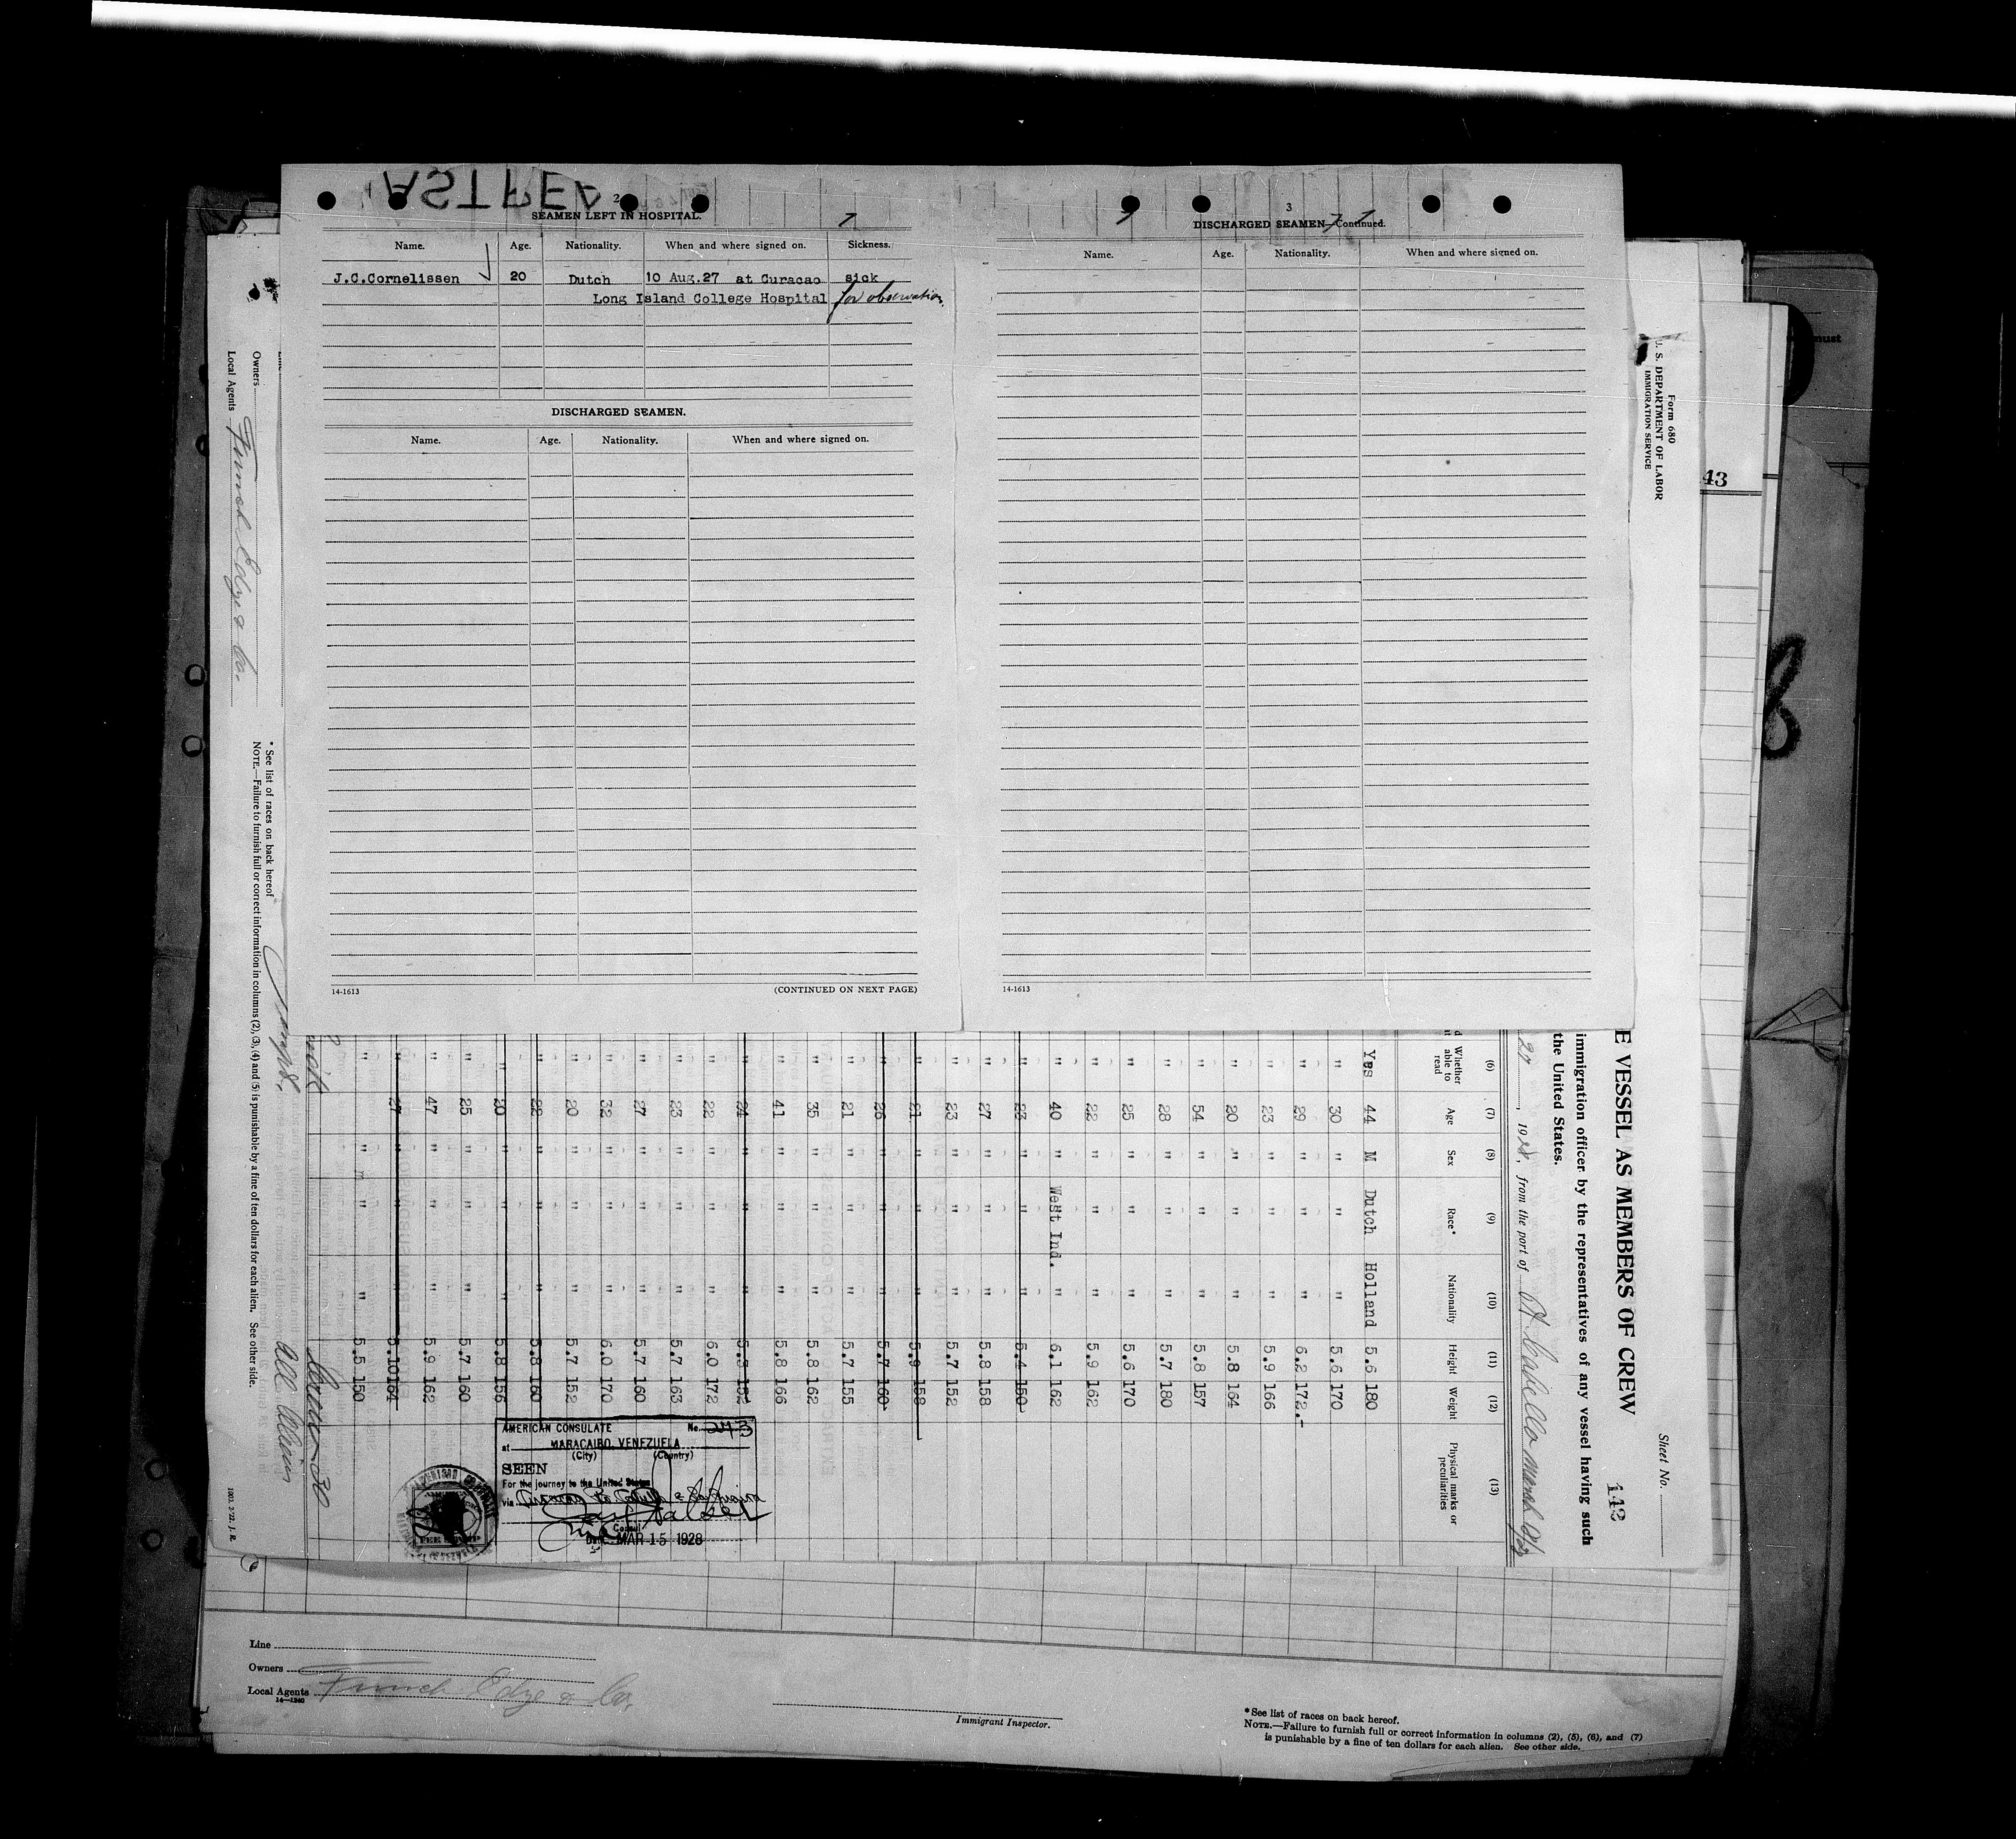 2
SEAMEN LEFT IN HOSPITAL.
Name. Age. Nationality. When and where signed on. Sickness.
J.C.Cornelissen 20 Dutch 10 Aug.27 at Curacao sick
Long Island College Hospital for observation
DISCHARGED SEAMEN.
Name. Age. Nationality. When and where signed on.
14-1613 (CONTINUED ON NEXT PAGE)
3
DISCHARGED SEAMEN—Continued.
Name. Age. Nationality. When and where signed on.
14-1613
must
43
Form 680
U. S. DEPARTMENT OF LABOR
IMMIGRATION SERVICE
Sheet No.
143
E VESSEL AS MEMBERS OF CREW
immigration officer by the representatives of any vessel having such
the United States.
27, 1928, from the port of
(6) (7) (8) (9) (10) (11) (12) (13)
Whether able to read Age Sex Race* Nationality Height Weight Physical marks or peculiarities
Yes 44 M Dutch Holland 5.6 180
" 30 " " " 5.6 170
" 29 " " " 6.2 172.-
" 23 " " " 5.9 166
" 20 " " " 5.8 164
" 54 " " " 5.8 157
" 28 " " " 5.7 180
" 25 " " " 5.6 170
" 22 " " " 5.9 162
" 40 " West Ind. " 6.1 162
" 23 " " " 5.4 150
" 27 " " " 5.8 158
" 23 " " " 5.7 152
" 21 " " " 5.9 158
" 26 " " " 5.7 160
" 21 " " " 5.7 155
" 35 " " " 5.8 162
" 41 " " " 5.8 166
" 24 " " " 5.3 152
" 22 " " " 6.0 172
" 23 " " " 5.7 163
" 27 " " " 5.7 160
" 32 " " " 6.0 170
" 20 " " " 5.7 152
" 22 " " " 5.8 160
" 20 " " " 5.8 156
" 25 " " " 5.7 160
" 47 " " " 5.9 162
" 27 " " " 5.10 164
" " " " 5.5 150
AMERICAN CONSULATE No. 273
at MARACAIBO, VENEZUELA
(City) (Country)
SEEN
For the journey to the United States
via
Consul
Date MAR 15 1928
* See list of races on back hereof
NOTE.—Failure to furnish full or correct information in columns (2), (3), (4) and (5) is punishable by a fine of ten dollars for each alien. See other side.
Owners
Local Agents Funch Edye & Co.
Line
Owners
Local Agents Funch Edye & Co.
14—1240
Immigrant Inspector.
*See list of races on back hereof.
NOTE.—Failure to furnish full or correct information in columns (2), (5), (6), and (7)
is punishable by a fine of ten dollars for each alien. See other side.